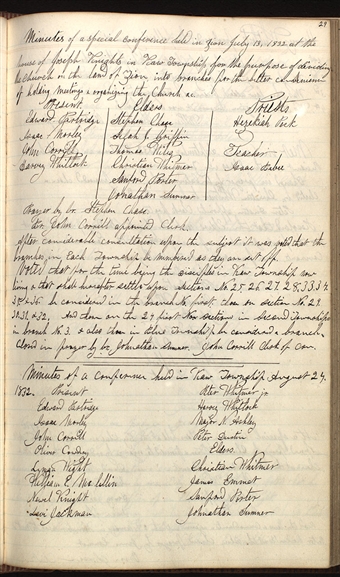 29
Minutes of a special conference held in Zion July 13, 1832 at the
house of Joseph Knights in Kaw Township for the purpose of deviding
the Church on the land of Zion, into branches for the better convenience
of holding meetings & organizing the Church &c.
Present Elders Priests
Edward Partridge Stephen Chase Hezekiah Peck
Isaac Morley Selah J. Griffin
John Corrill Thomas Teacher
Harvey Whitlock Christian Whitmer Isaac
Sanford Porter
Johnathan Sumner
Prayer by br. Stephen Chase.
br. John Corrill appointed Clerk.
After considerable consultation upon the subject it was voted that the
branches in Each Township be numbered as they are set off.
Voted that for the time being the disciples in Kaw Township now
living or that shall hereafter settle upon Sections No. 25, 26, 27,
35 & 36 be considered in the branch No. first. Also on section No. 29.
30, 31 & 32. And also on the
in branch No. 3. & also in Blue Township be considered a branch.
Closed in prayer by br. Johnathan Sumner. John Corrill Clerk of Con.
Minutes of a Conference held in Kaw Township August 24,
1832. Present Peter Whitmer jr
Edward Partridge Harvey Whitlock
Isaac Morley Major N. Ashley
John Corrill Peter Dustin
Oliver Cowdery Elders.
Lyman Wight Christian Whitmer
William E. McLellin James Emmet
Newel Knight Sanford Porter
Levi Jackman Johnathan Sumner